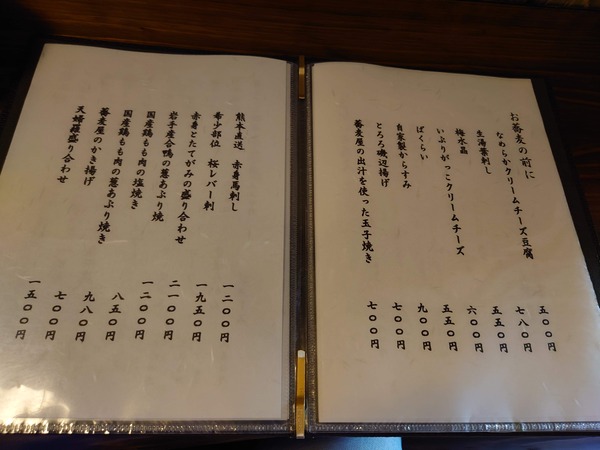 お蕎麦の前に
なめらかクリームチーズ豆腐
五〇〇円
生湯葉刺し
七八〇円
梅水晶
五五〇円
いぶりがっこクリームチーズ
六〇〇円
ばくらい
五五〇円
自家製からすみ
九〇〇円
とろろ磯辺揚げ
七〇〇円
蕎麦屋の出汁を使った玉子焼き
七〇〇円
熊本直送 赤身馬刺し
一二〇〇円
希少部位 桜レバー刺
一九五〇円
赤身とたてがみの盛り合わせ
二一〇〇円
岩手産合鴨の葱あぶり焼
一二〇〇円
国産鶏もも肉の塩焼き
八五〇円
国産鶏もも肉の葱あぶり焼き
九八〇円
蕎麦屋のかき揚げ
七〇〇円
天婦羅盛り合わせ
一五〇〇円